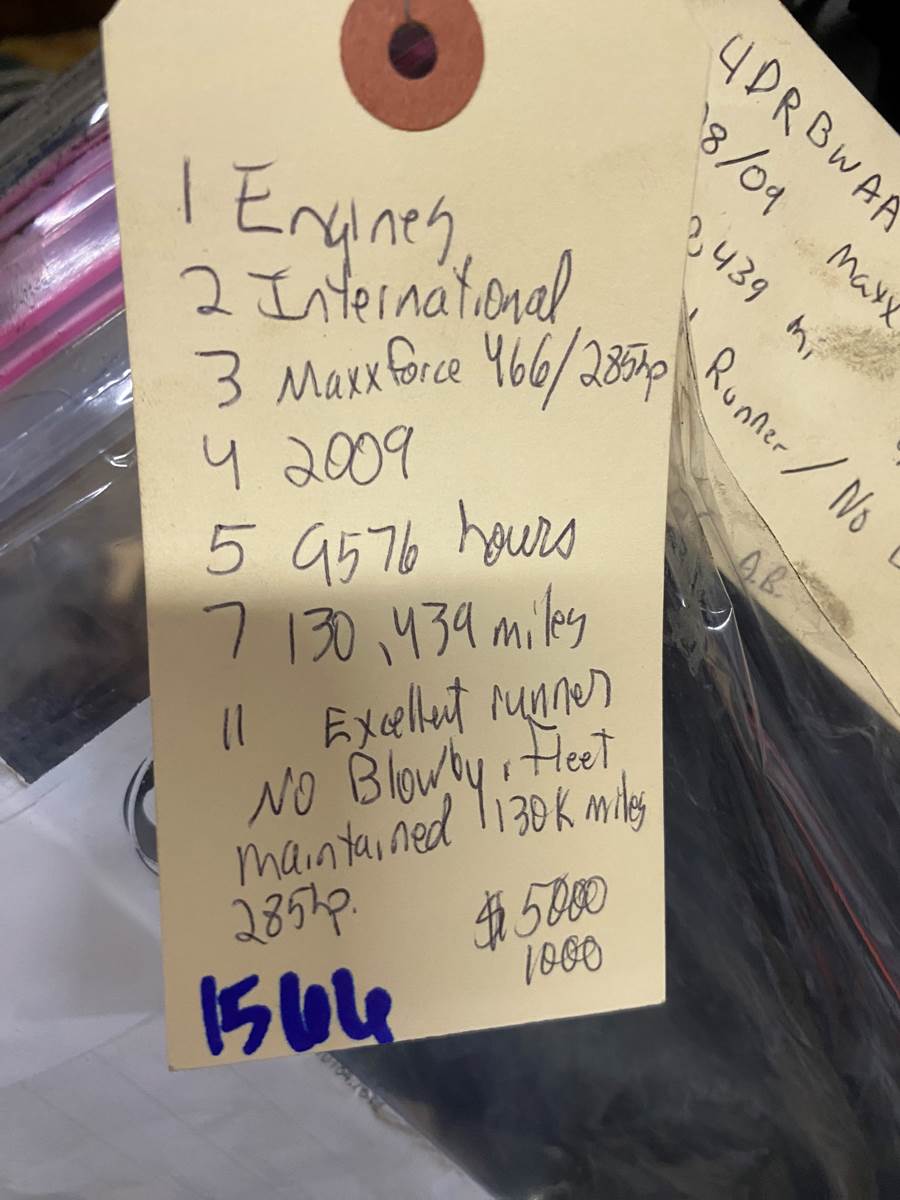 1 Engines
2 International
3 Maxxforce 466/285hp
4 2009
5 9576 hours
7 130,439 miles
11 Excellent runner
No Blowby, Fleet
maintained 130K miles
285hp.
$5000
1000
1566
4DRBWAA
8/09 Maxx
439 mi
Runner/No